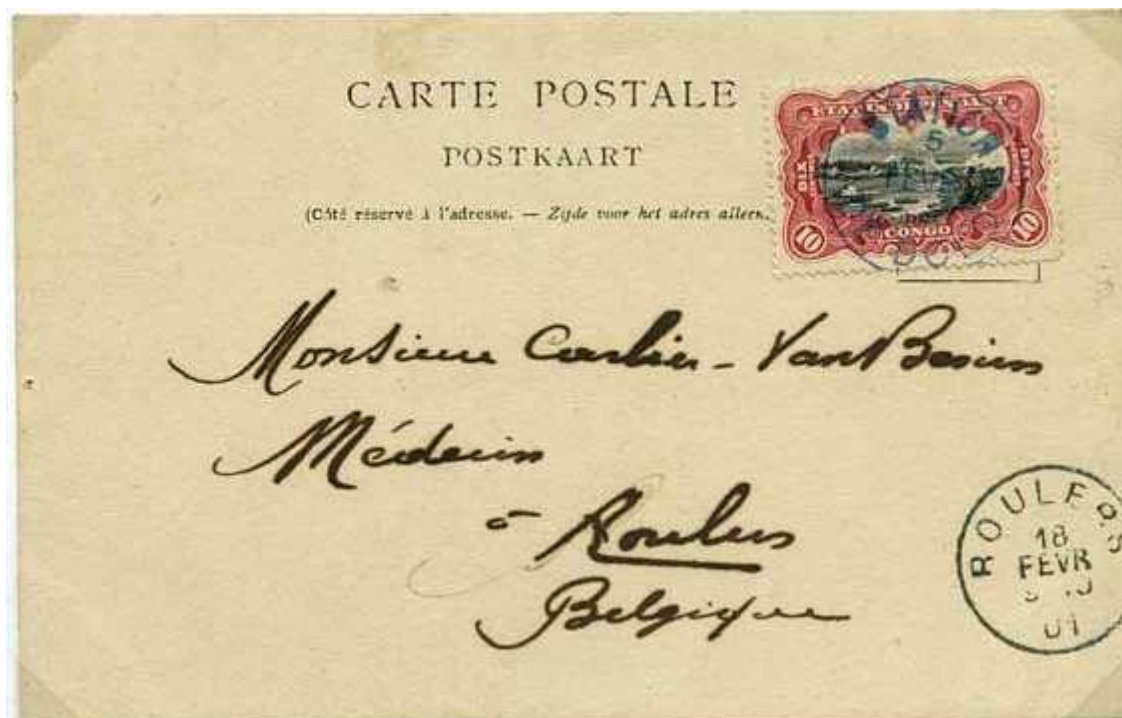 CARTE POSTALE
POSTKAART
(Côté réservé à l'adresse. — Zijde voor het adres alleen.
ÉTAT INDÉPENDANT
DIX
CONGO
10 10
STATION
5
Monsieur Carlier - VanBesien
Médecin
à Roulers
Belgique
ROULERS
18
FEVR
01